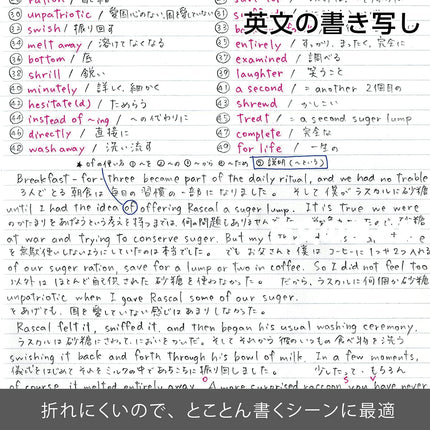 英文の書き写し
㉚ unpatriotic / 愛国心のない、国を愛していない
㉜ swish / 振り回す
㉞ melt away / 溶けてなくなる
㊱ bottom / 底
㊳ shrill / 鋭い
㊵ minutely / 詳しく、細かく
㊷ hesitate(d) / ためらう
㊹ instead of ~ing / ~への代わりに
㊻ directly / 直接に
㊽ wash away / 洗い流す
entirely / すっかり、まったく、完全に
㊲ examined / 調べる
laughter / 笑うこと
a second / = another 2個目の
shrewd / かしこい
Treat / = a second suger lump
complete / 完全な
for life / 一生の
* ofの使い方 ①へを ②への ③~から ④~ため ⑤説明(~という)
Breakfast-for-three became part of the daily ritual, and we had no trable
3人でとる朝食は毎日の習慣の一部になりました。 そして僕がラスカルに砂糖
until I had the idea of offering Rascal a suger lump. It is true we were
のかたまりをあげようという考えを持つまでは、何の問題もありませんで
at war and trying to conserve suger. But my
を無駄使いしないようにしていたのは本当でした。 でもお父さんと僕はコーヒーに1つや2つ入れる
of our suger ration, save for a lump or two in coffee. So I did not feel too
以外はほとんど割り当てられた砂糖を使わなかった。 だから、ラスカルに何個か砂糖
unpatriotic when I gave Rascal some of our suger.
をあげても、国を愛していない感じはあまりしなかった。
Rascal felt it, sniffed it, and then began his usual washing ceremony,
ラスカルは砂糖にさわって、においをかいだ。そしてそれからいつもの食べ物を洗う
swishing it back and forth through his bowl of milk. In a few moments,
儀式をはじめてそれをミルクの中であちこちに振り回しました。 少したって、もちろん
of course, it melted entirely away. A more surprised raccoon you have never
折れにくいので、とことん書くシーンに最適